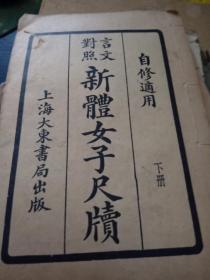 自修適用
言文
對照
新體女子尺牘
下册
上海大東書局出版